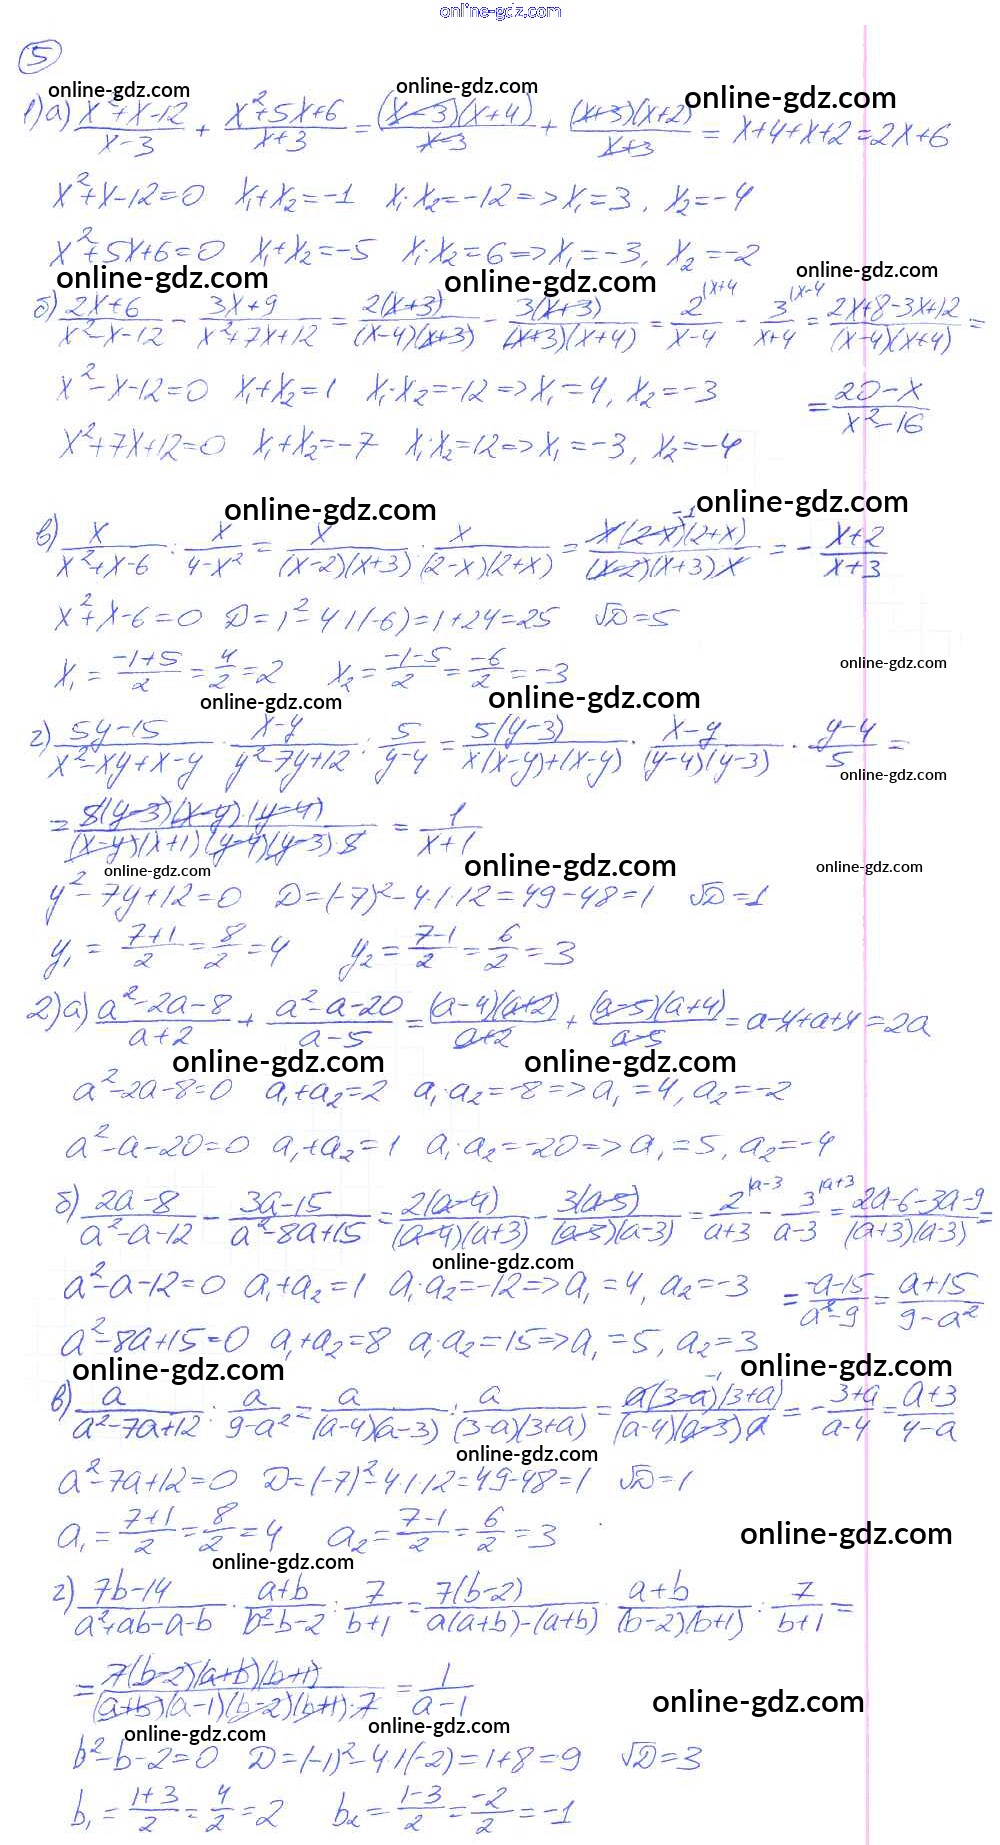 online-gdz.com
5
online-gdz.com online-gdz.com online-gdz.com
1) а) (x²+x-12)/(x-3) + (x²+5x+6)/(x+3) = ((x-3)(x+4))/(x-3) + ((x+3)(x+2))/(x+3) = x+4+x+2 = 2x+6
x²+x-12=0 x₁+x₂=-1 x₁·x₂=-12 => x₁=3, x₂=-4
x²+5x+6=0 x₁+x₂=-5 x₁·x₂=6 => x₁=-3, x₂=-2
online-gdz.com online-gdz.com online-gdz.com
б) (2x+6)/(x²-x-12) - (3x+9)/(x²+7x+12) = (2(x+3))/((x-4)(x+3)) - (3(x+3))/((x+3)(x+4)) = 2/(x-4) |x+4 - 3/(x+4) |x-4 = (2x+8-3x+12)/((x-4)(x+4)) =
x²-x-12=0 x₁+x₂=1 x₁·x₂=-12 => x₁=4, x₂=-3 = (20-x)/(x²-16)
x²+7x+12=0 x₁+x₂=-7 x₁·x₂=12 => x₁=-3, x₂=-4
online-gdz.com online-gdz.com
в) x/(x²+x-6) : x/(4-x²) = x/((x-2)(x+3)) : x/((2-x)(2+x)) = (x(2-x)⁻¹(2+x))/((x-2)(x+3)x) = -(x+2)/(x+3)
x²+x-6=0 D=1²-4·1(-6)=1+24=25 √D=5
online-gdz.com
x₁=(-1+5)/2=4/2=2 x₂=(-1-5)/2=-6/2=-3
online-gdz.com online-gdz.com
г) (5y-15)/(x²-xy+x-y) · (x-y)/(y²-7y+12) : 5/(y-4) = (5(y-3))/(x(x-y)+(x-y)) · (x-y)/((y-4)(y-3)) · (y-4)/5 =
online-gdz.com
= (5(y-3)(x-y)·(y-4))/((x-y)(x+1)(y-4)(y-3)·5) = 1/(x+1)
online-gdz.com online-gdz.com online-gdz.com
y²-7y+12=0 D=(-7)²-4·1·12=49-48=1 √D=1
y₁=(7+1)/2=8/2=4 y₂=(7-1)/2=6/2=3
2) а) (a²-2a-8)/(a+2) + (a²-a-20)/(a-5) = ((a-4)(a+2))/(a+2) + ((a-5)(a+4))/(a-5) = a-4+a+4 = 2a
online-gdz.com online-gdz.com
a²-2a-8=0 a₁+a₂=2 a₁·a₂=-8 => a₁=4, a₂=-2
a²-a-20=0 a₁+a₂=1 a₁·a₂=-20 => a₁=5, a₂=-4
б) (2a-8)/(a²-a-12) - (3a-15)/(a²-8a+15) = (2(a-4))/((a-4)(a+3)) - (3(a-5))/((a-5)(a-3)) = 2/(a+3) |a-3 - 3/(a-3) |a+3 = (2a-6-3a-9)/((a+3)(a-3)) =
online-gdz.com
a²-a-12=0 a₁+a₂=1 a₁·a₂=-12 => a₁=4, a₂=-3 = (-a-15)/(a²-9) = (a+15)/(9-a²)
a²-8a+15=0 a₁+a₂=8 a₁·a₂=15 => a₁=5, a₂=3
online-gdz.com online-gdz.com
в) a/(a²-7a+12) : a/(9-a²) = a/((a-4)(a-3)) : a/((3-a)(3+a)) = (a(3-a)⁻¹(3+a))/((a-4)(a-3)a) = -(3+a)/(a-4) = (a+3)/(4-a)
online-gdz.com
a²-7a+12=0 D=(-7)²-4·1·12=49-48=1 √D=1
a₁=(7+1)/2=8/2=4 a₂=(7-1)/2=6/2=3
online-gdz.com
online-gdz.com
г) (7b-14)/(a²+ab-a-b) · (a+b)/(b²-b-2) : 7/(b+1) = (7(b-2))/(a(a+b)-(a+b)) · (a+b)/((b-2)(b+1)) : 7/(b+1) =
= (7(b-2)(a+b)(b+1))/((a+b)(a-1)(b-2)(b+1)·7) = 1/(a-1)
online-gdz.com
online-gdz.com online-gdz.com
b²-b-2=0 D=(-1)²-4·1(-2)=1+8=9 √D=3
b₁=(1+3)/2=4/2=2 b₂=(1-3)/2=-2/2=-1